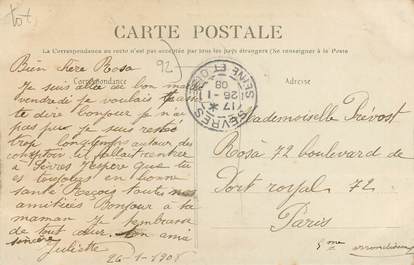 tot
CARTE POSTALE
La Correspondance au recto n'est pas acceptée par tous les pays étrangers (Se renseigner à la Poste
Correspondance
Adresse
92
SÈVRES
17 *
26 - 1
08
SEINE ET OISE
Bien chère Rosa
Je suis allée de bon mar
vendredi je voulais
te dire bonjour je n'ai
pas pu je suis resté
trop longtemps autour des
comptoir il fallait rentrer
à Sèvres j'espère que tu
es toujours en bonne
santé Reçois toutes mes
amitiées Bonjour à ta
maman Je t'embrasse
de tout cœur. ton amie
sincère
Juliette
26-1-1908
Mademoiselle Prévost
Rosa 72 boulevard de
Port royal 72
Paris
5ème arrondissement